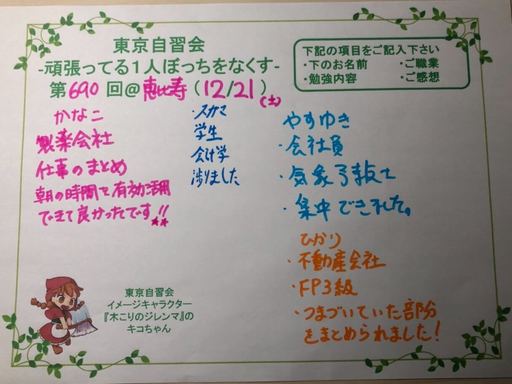 東京自習会
-頑張ってる1人ぼっちをなくす-
第690回@恵比寿(12/21)
(土)
下記の項目をご記入下さい
・下のお名前 ・ご職業
・勉強内容 ・ご感想
かなこ
製薬会社
仕事のまとめ
朝の時間を有効活用
できて良かったです!!
学生
会計学
渉りました
やすゆき
・会社員
・気象予報士
・集中できました。
ひかり
・不動産会社
・FP3級
・つまづいていた部分
をまとめられました!
東京自習会
イメージキャラクター
『木こりのジレンマ』の
キコちゃん